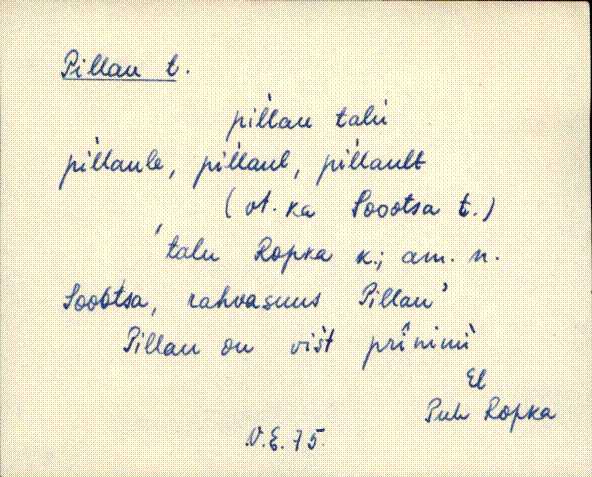 Pillau t.
pil̀lau talu
pil̀laule, pil̀laul, pil̀lault
(vt. ka Soootsa t.)
'talu Ropka k.; am. n.
Soootsa, rahvasuus Pillau'
Pillau on višt prînimì
El
Puh Ropka
V.E. 75.